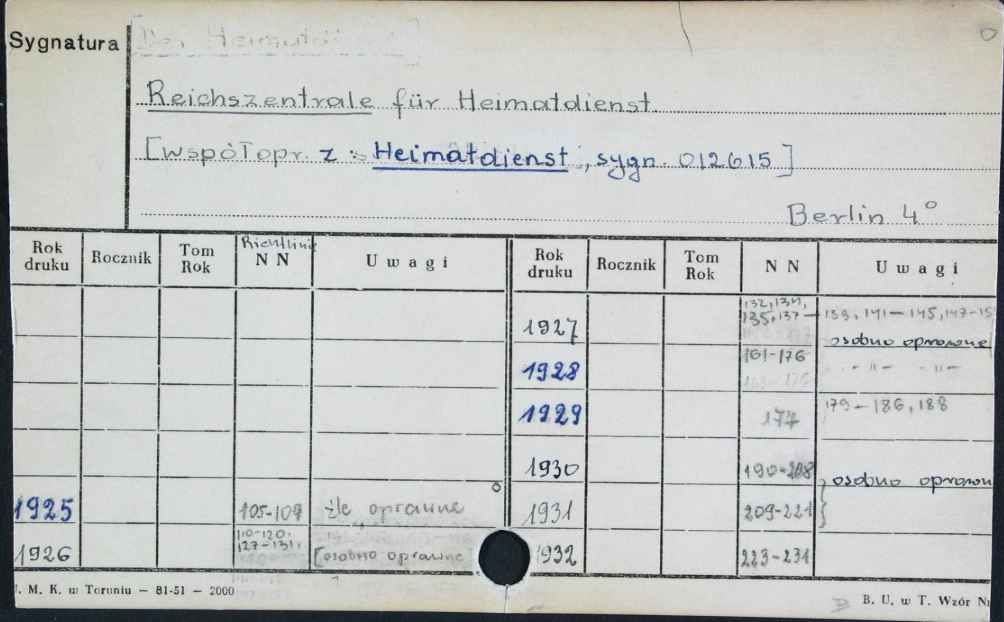 Sygnatura
[Der Heimatdi
Reichszentrale für Heimatdienst
[współopr. z: Heimatdienst, sygn. 012615]
Berlin 4°
Rok druku Rocznik Tom Rok Richtlinie NN Uwagi Rok druku Rocznik Tom Rok NN Uwagi
1927 132, 134, 135, 137 — 139, 141 — 145, 147-15
osobno oprawne
1928 161-176 - „ - - „ -
1929 177 179 - 186, 188
1930 190-208 osobno oprawn
1925 105-109 źle oprawne 1931 209-221
1926 110-120, 127-131, [osobno oprawne 1932 223-231
. M. K. w Toruniu — 81-51 — 2000
B. U. w T. Wzór Nr